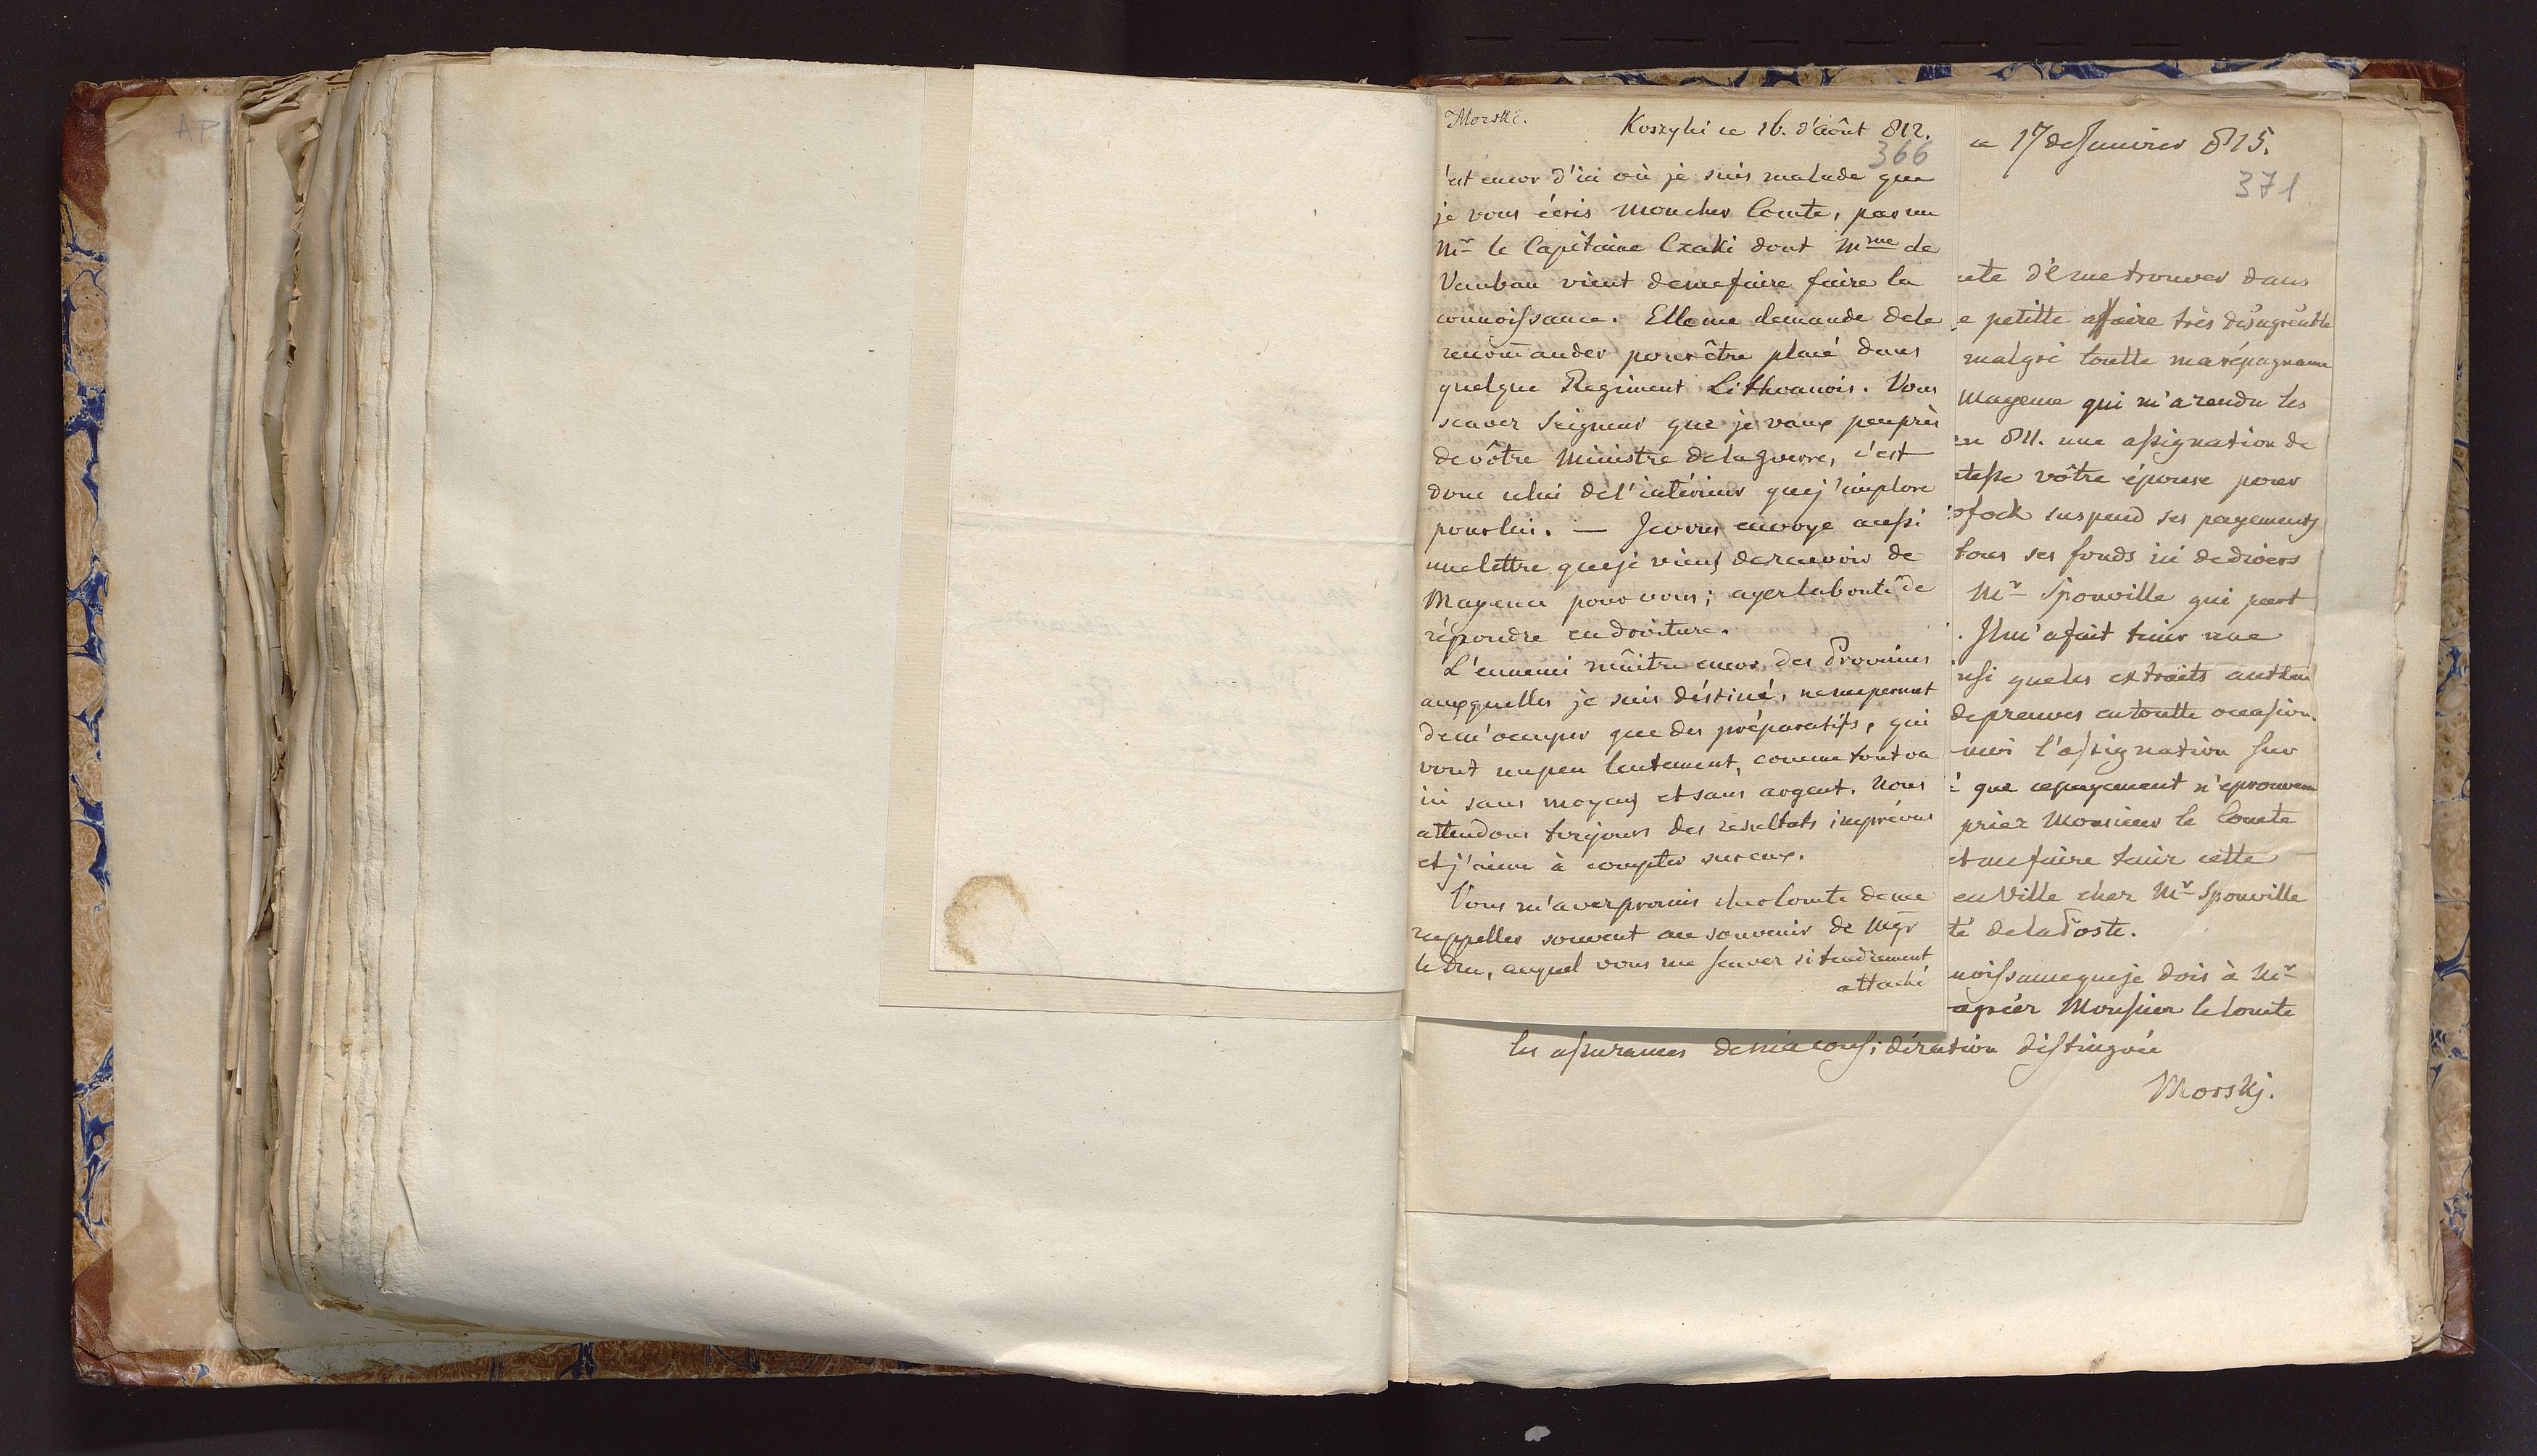 AP
Morski.
Koszyki ce 16. d'août 812.
366
'est encor d'ici où je suis malade que
je vous écris mon cher Comte, par un
Mr le Capitaine Czaki dont Mme de
Vauban vient de me faire faire la
connoissance. Elle me demande de le
recom̄ander pour être placé dans
quelque Regiment Lithuanois. Vous
scavez Seigneur que je vaux peu près
de vôtre Ministre de la guerre, c'est
donc celui de l'intérieur que j'implore
pour lui. — Je vous envoye aussi
une lettre que je viens de recevoir de
Mayence pour vous; ayez la bonté de
répondre en droiture.
L'ennemi mâitre encor des Provinces
auxquelles je suis déstiné, ne me permet
de m'occuper que des préparatifs, qui
vont un peu lentement, comme tout va
ici sans moyens et sans argent. Nous
attendons toujours des resultats imprévus
et j'aime à compter sur eux.
Vous m'avez promis cher Comte de me
rappeller souvent au souvenir de Mgr
le Duc, auquel vous me scavez si tendrement
attaché
ce 17 de Janvier 815.
371
nte d'é me trouver dans
e petitte affaire très désagréable
malgré toutte ma répugnance
Mayence qui m'a rendu les
en 811. une assignation de
tesse vôtre épouse pour
ofock suspend ses payements
tous ses fonds ici de divers
Mr Sponville qui part
. Il m'a fait tenir une
nsi que les extraits authen
de preuves en toutte occasion.
moi l'assignation sur
é que ce payement n'eprouvera
prier Monsieur le Comte
et me faire tenir cette
en Ville chez Mr Sponville
té de la Poste.
noissance que je dois à Mr
agréer Monsieur le Comte
les assurances de ma considération distinguée
Morskj.